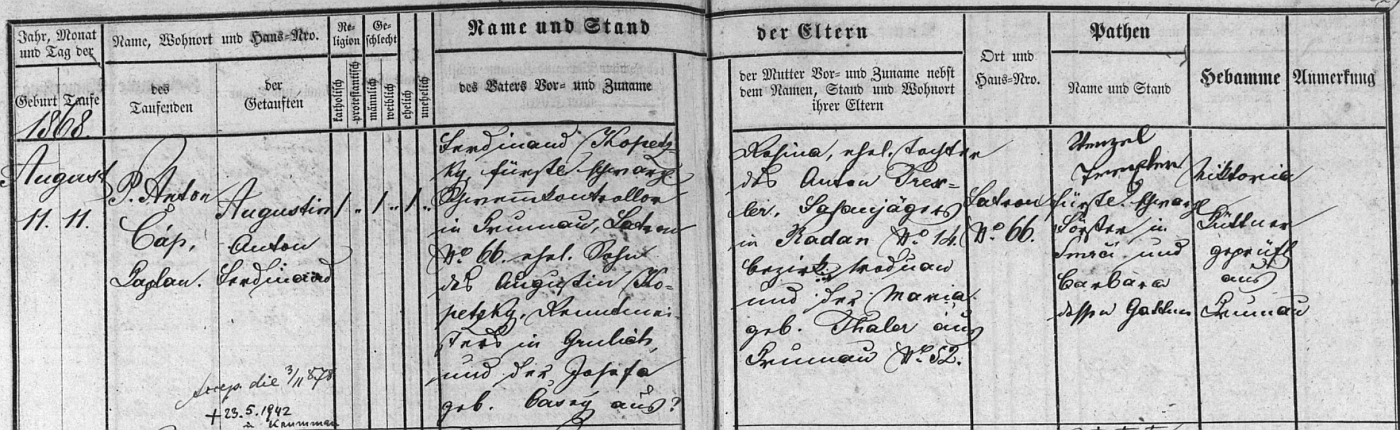 Jahr, Monat
und Tag der
Geburt Taufe
Name, Wohnort und Haus-Nro.
des
Taufenden
der
Getauften
Re-
ligion
katholisch
protestantisch
Ge-
schlecht
männlich
weiblich
ehelich
unehelich
Name und Stand
des Vaters Vor- und Zuname
der Eltern
der Mutter Vor- und Zuname nebst
dem Namen, Stand und Wohnort
ihrer Eltern
Ort und
Haus-Nro.
Pathen
Name und Stand
Hebamme
Anmerkung
1868.
August
11. 11.
P. Anton
Cáp,
Kaplan.
Augustin
Anton
Ferdinand
accep. die 3/11 878
+ 23.5.1942
in Krummau
1 " 1 " 1 "
Ferdinand Kopetz-
ky, fürstl. schwarz
in Krumau, Latron
No. 66. ehel. Sohn
des Augustin Ko-
petzky, Rentmei-
sters in Grulich,
und der Josefa
geb. aus?
Rosina, ehel. Tochter
des Anton Trex-
ler, Fasanjägers
in Radan No. 14.
bezirk
und der Maria
geb. Thaler aus
Krumau No. 52.
Latron
No. 66.
Wenzel
fürstl. schwarz
Förster in
und
Barbara
dessen Gattin
Viktoria
Küttner
geprüft
aus
Krumau